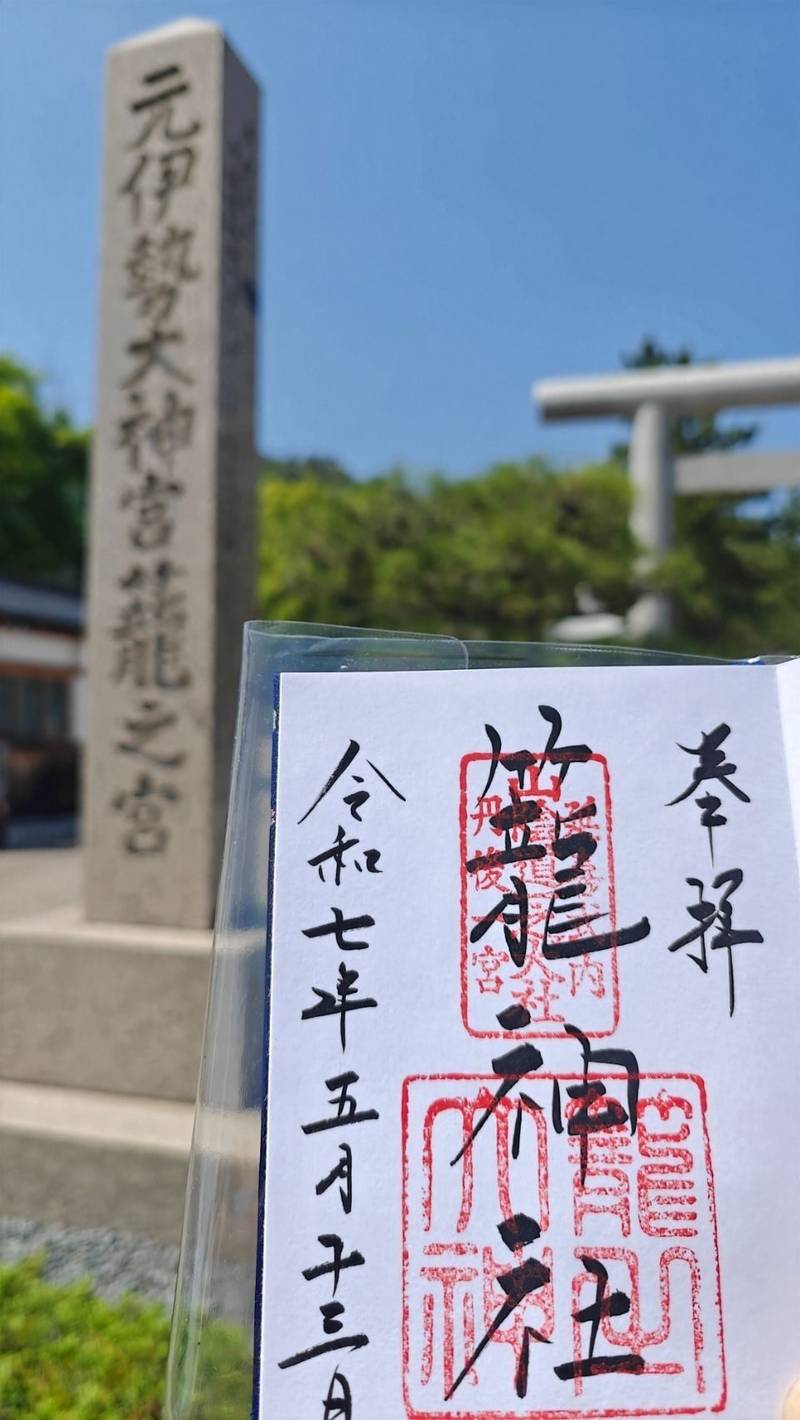 元伊勢大神宮籠之宮
奉拝
籠神社
丹後一宮
令和七年五月十三日